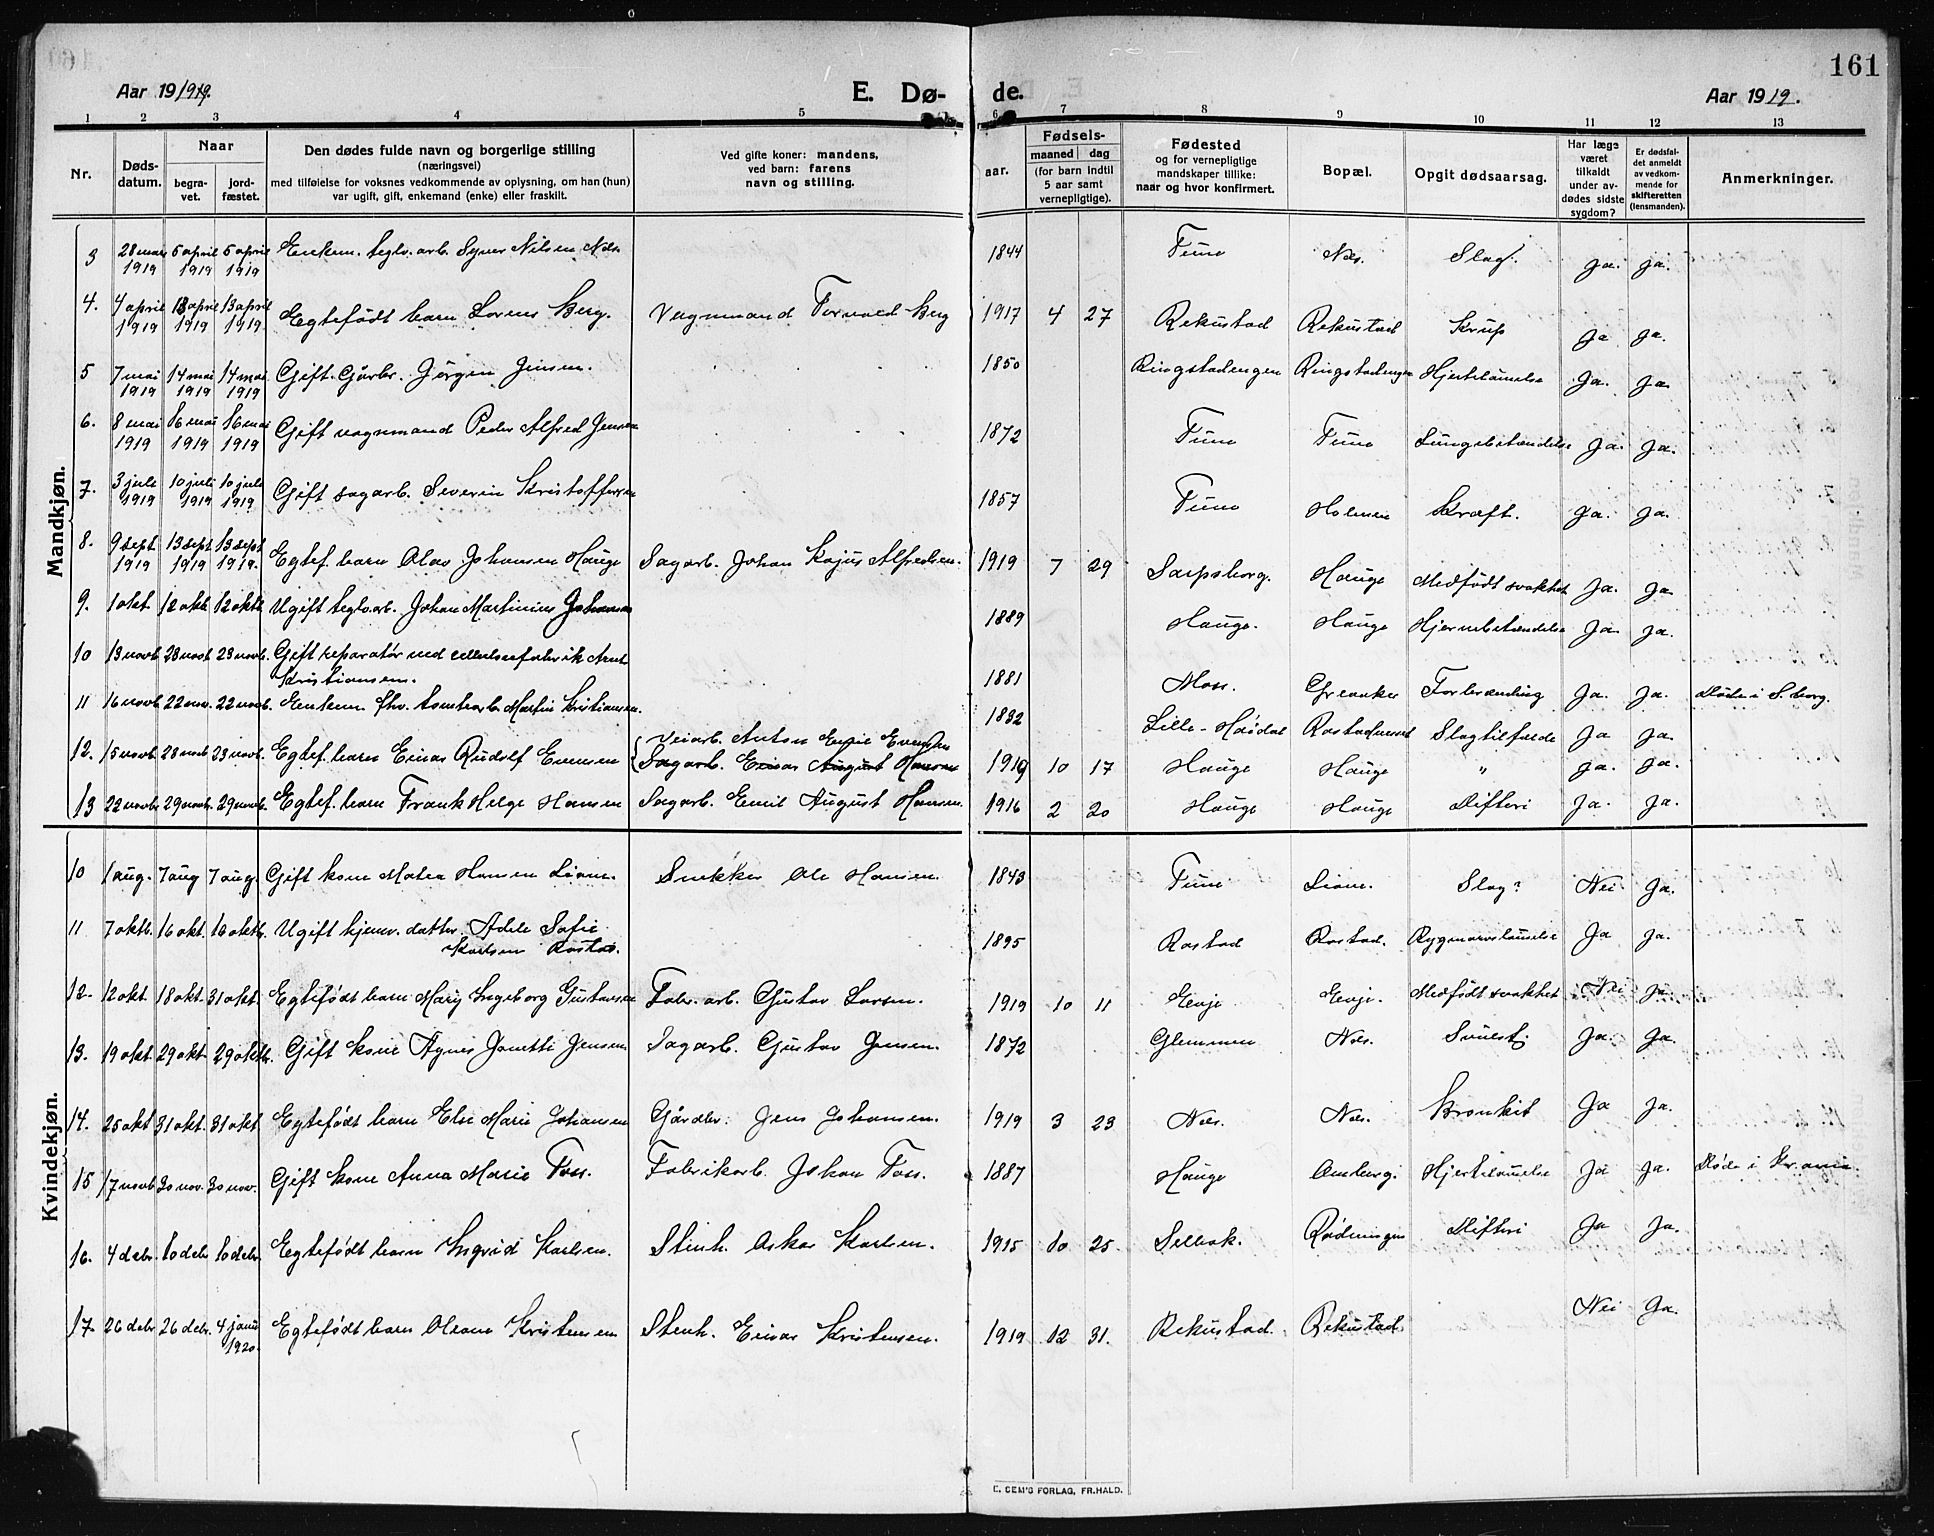 161
Aar 1919.
E. Dø-
de.
Aar 1919.
1 2 3 4 5 6 7 8 9 10 11 12 13
Nr.
Døds-
datum.
Naar
begra-
vet.
jord-
fæstet.
Den dødes fulde navn og borgerlige stilling
(næringsvei)
med tilføielse for voksnes vedkommende av oplysning, om han (hun)
var ugift, gift, enkemand (enke) eller fraskilt.
Ved gifte koner: mandens,
ved barn: farens
navn og stilling.
aar.
Fødsels-
maaned dag
(for barn indtil
5 aar samt
vernepligtige).
Fødested
og for vernepligtige
mandskaper tillike:
naar og hvor konfirmert.
Bopæl.
Opgit dødsaarsag.
Har læge
været
tilkaldt
under av-
dødes sidste
sygdom?
Er dødsfal-
det anmeldt
av vedkom-
mende for
skifteretten
(lensmanden).
Anmerkninger.
Mandkjøn.
3 28 mars 1919 5 april 1919 5 april 1919 Enkem. teglv. arb. Syver Nilsen Næs 1844 Tune Næs. Slag. ja. ja.
4. 4 april 1919 13 april 1919 13 april 1919 Egtefødt barn Lorens Berg. Vognmand Torvald Berg 1917 4 27 Rekustad Rekustad Krup ja ja.
5 7 mai 1919 14 mai 1919 14 mai 1919 Gift. Gårbr. Jørgen Jensen. 1850 Ringstadengen Ringstadengen Hjertelamelse Ja. Ja.
6. 8 mai 1919 16 mai 1919 16 mai 1919 Gift vognmand Peder Alfred Jensen 1872 Tune Tune Lungebetændelse Ja. Ja.
7. 3 juli 1919 10 juli 1919 10 juli 1919 Gift sagarb. Severin Kristoffersen 1857 Tune Holmen Kræft. Ja. Ja.
8. 9 sept 1919 13 sept 1919 13 sept 1919. Egtef. barn Olav Johansen Hauge Sagarb. Johan Kajus Alfredsen. 1919 7 29 Sarpsborg. Hauge Medfødt svakhet Ja. Ja.
9. 1 okt. 12 okt. 12 okt. Ugift teglv.arb. Johan Martinius Johansen 1889 Hauge. Hauge Hjernebetændelse Ja. Ja.
10 13 novb. 23 novb. 23 novb. Gift reparatør ved cellulosefabrik Arnt
Kristiansen. 1881 Moss. Greaaker Forbrænding Ja. Ja. Døde i S.borg.
11 16 novb 22 nov. 22 novb. Enkem fhv. tomtearb. Martin Kristiansen. 1832 Lille-Høidal Rostadneset Slagtilfælde Ja Ja.
12. 15 novb. 23 novb 23 novb. Egtef. barn Einar Rudolf Evensen Veiarb. Anton Emil Evensen
Sagarb. Einar August Hansen 1919 10 17 Hauge Hauge " ja. Ja.
13 22 novbr. 29 novbr. 29 novbr. Egtef. barn Frank Helge Hansen Sagarb. Emil August Hansen. 1916 2 20 Hauge Hauge Difteri Ja. Ja.
Kvindekjøn.
10 1 aug. 7 aug 7 aug. Gift kone Matea Hansen Liane. Snekker Ole Hansen. 1843 Tune Liane. Slag? Nei Ja.
11 7 oktb. 16 okt. 16 oktb. Ugift hjemv. datter Adele Sofie
Karlsen Rostad. 1895 Rostad Rostad. Rygmarvslamelse Ja Ja.
12. 12 okt. 18 okt. 31 okt. Egtefødt barn Mary Ingeborg Gustavsen Fabr. arb. Gustav Larsen. 1919 10 11 Evje Evje. Medfødt svakhet Nei Ja.
13. 19 okt. 29 okt. 29 oktb. Gift kone Agnes Janetti Jensen Sagarb. Gustav Jensen. 1872 Glemmen Næs. Svulst Ja. Ja.
14. 25 okt 31 okt. 31 okt. Egtefødt barn Else Marie Johansen Gårdbr. Jens Johansen. 1919 3 23 Næs. Næs. Bronkit Ja Ja.
15 17 novb 30 nov. 30 nov. Gift kone Anna Marie Foss. Fabrikarb. Johan Foss. 1887 Hauge Hjertelamelse Ja Ja. Døde i Kr.ania.
16. 4 debr. 10 debr 10 debr. Egtefødt barn Ingrid Karlsen. Stenh. Oskar Karlsen. 1915 10 25. Selbak. Rødningen Difteri Ja Ja.
17. 26 debr. 26 debr. 4 januar 1920. Egtefødt barn Oleane Kristensen Stenh. Einar Kristensen. 1919 12 31. Rekustad. Rekustad Nei Ja.
E. SEM'S FORLAG, FR.HALD.